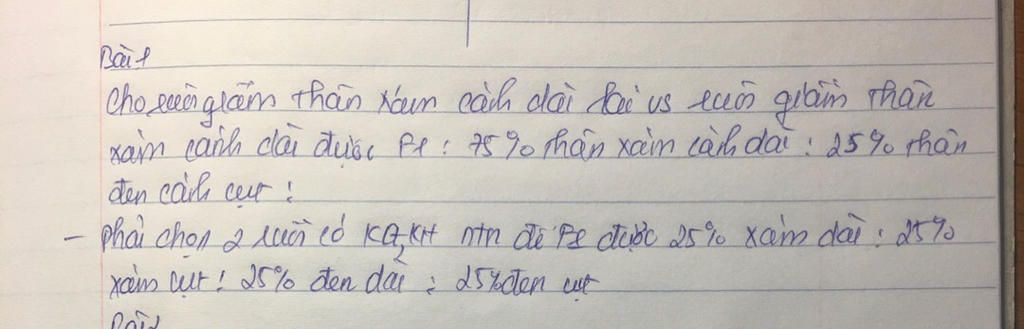 Bài 1
Cho ruồi giấm thân xám cánh dài lai vs ruồi giấm thân
xám cánh dài được F1 : 75% thân xám cánh dài : 25% thân
đen cánh cụt !
- phải chọn 2 ruồi có KG, KH ntn để F2 được 25% xám dài : 25%
xám cụt : 25% đen dài : 25% đen cụt